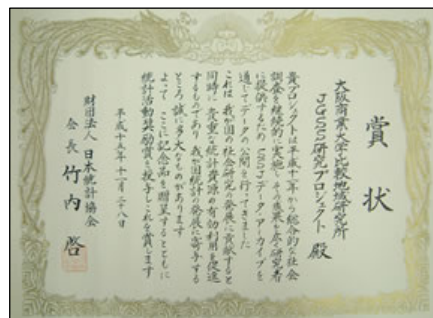 賞状
大阪商業大学比較地域研究所
JGSS研究プロジェクト 殿
貴プロジェクトは平成十一年から総合的な社会
調査を継続的に実施し その成果を広く研究者
に提供するため SSJデータ・アーカイブを
通じてデータの公開を行ってきました
これは 我が国の社会研究の発展に貢献すると
同時に 貴重な統計資源の有効利用を促進
するものであり 我が国統計の発展に寄与する
ところ 誠に多大なものがあります
よって ここに記念品を贈呈するとともに
統計活動奨励賞を授与しこれを賞します
平成十五年十一月二十八日
財団法人 日本統計協会
会長 竹内 啓